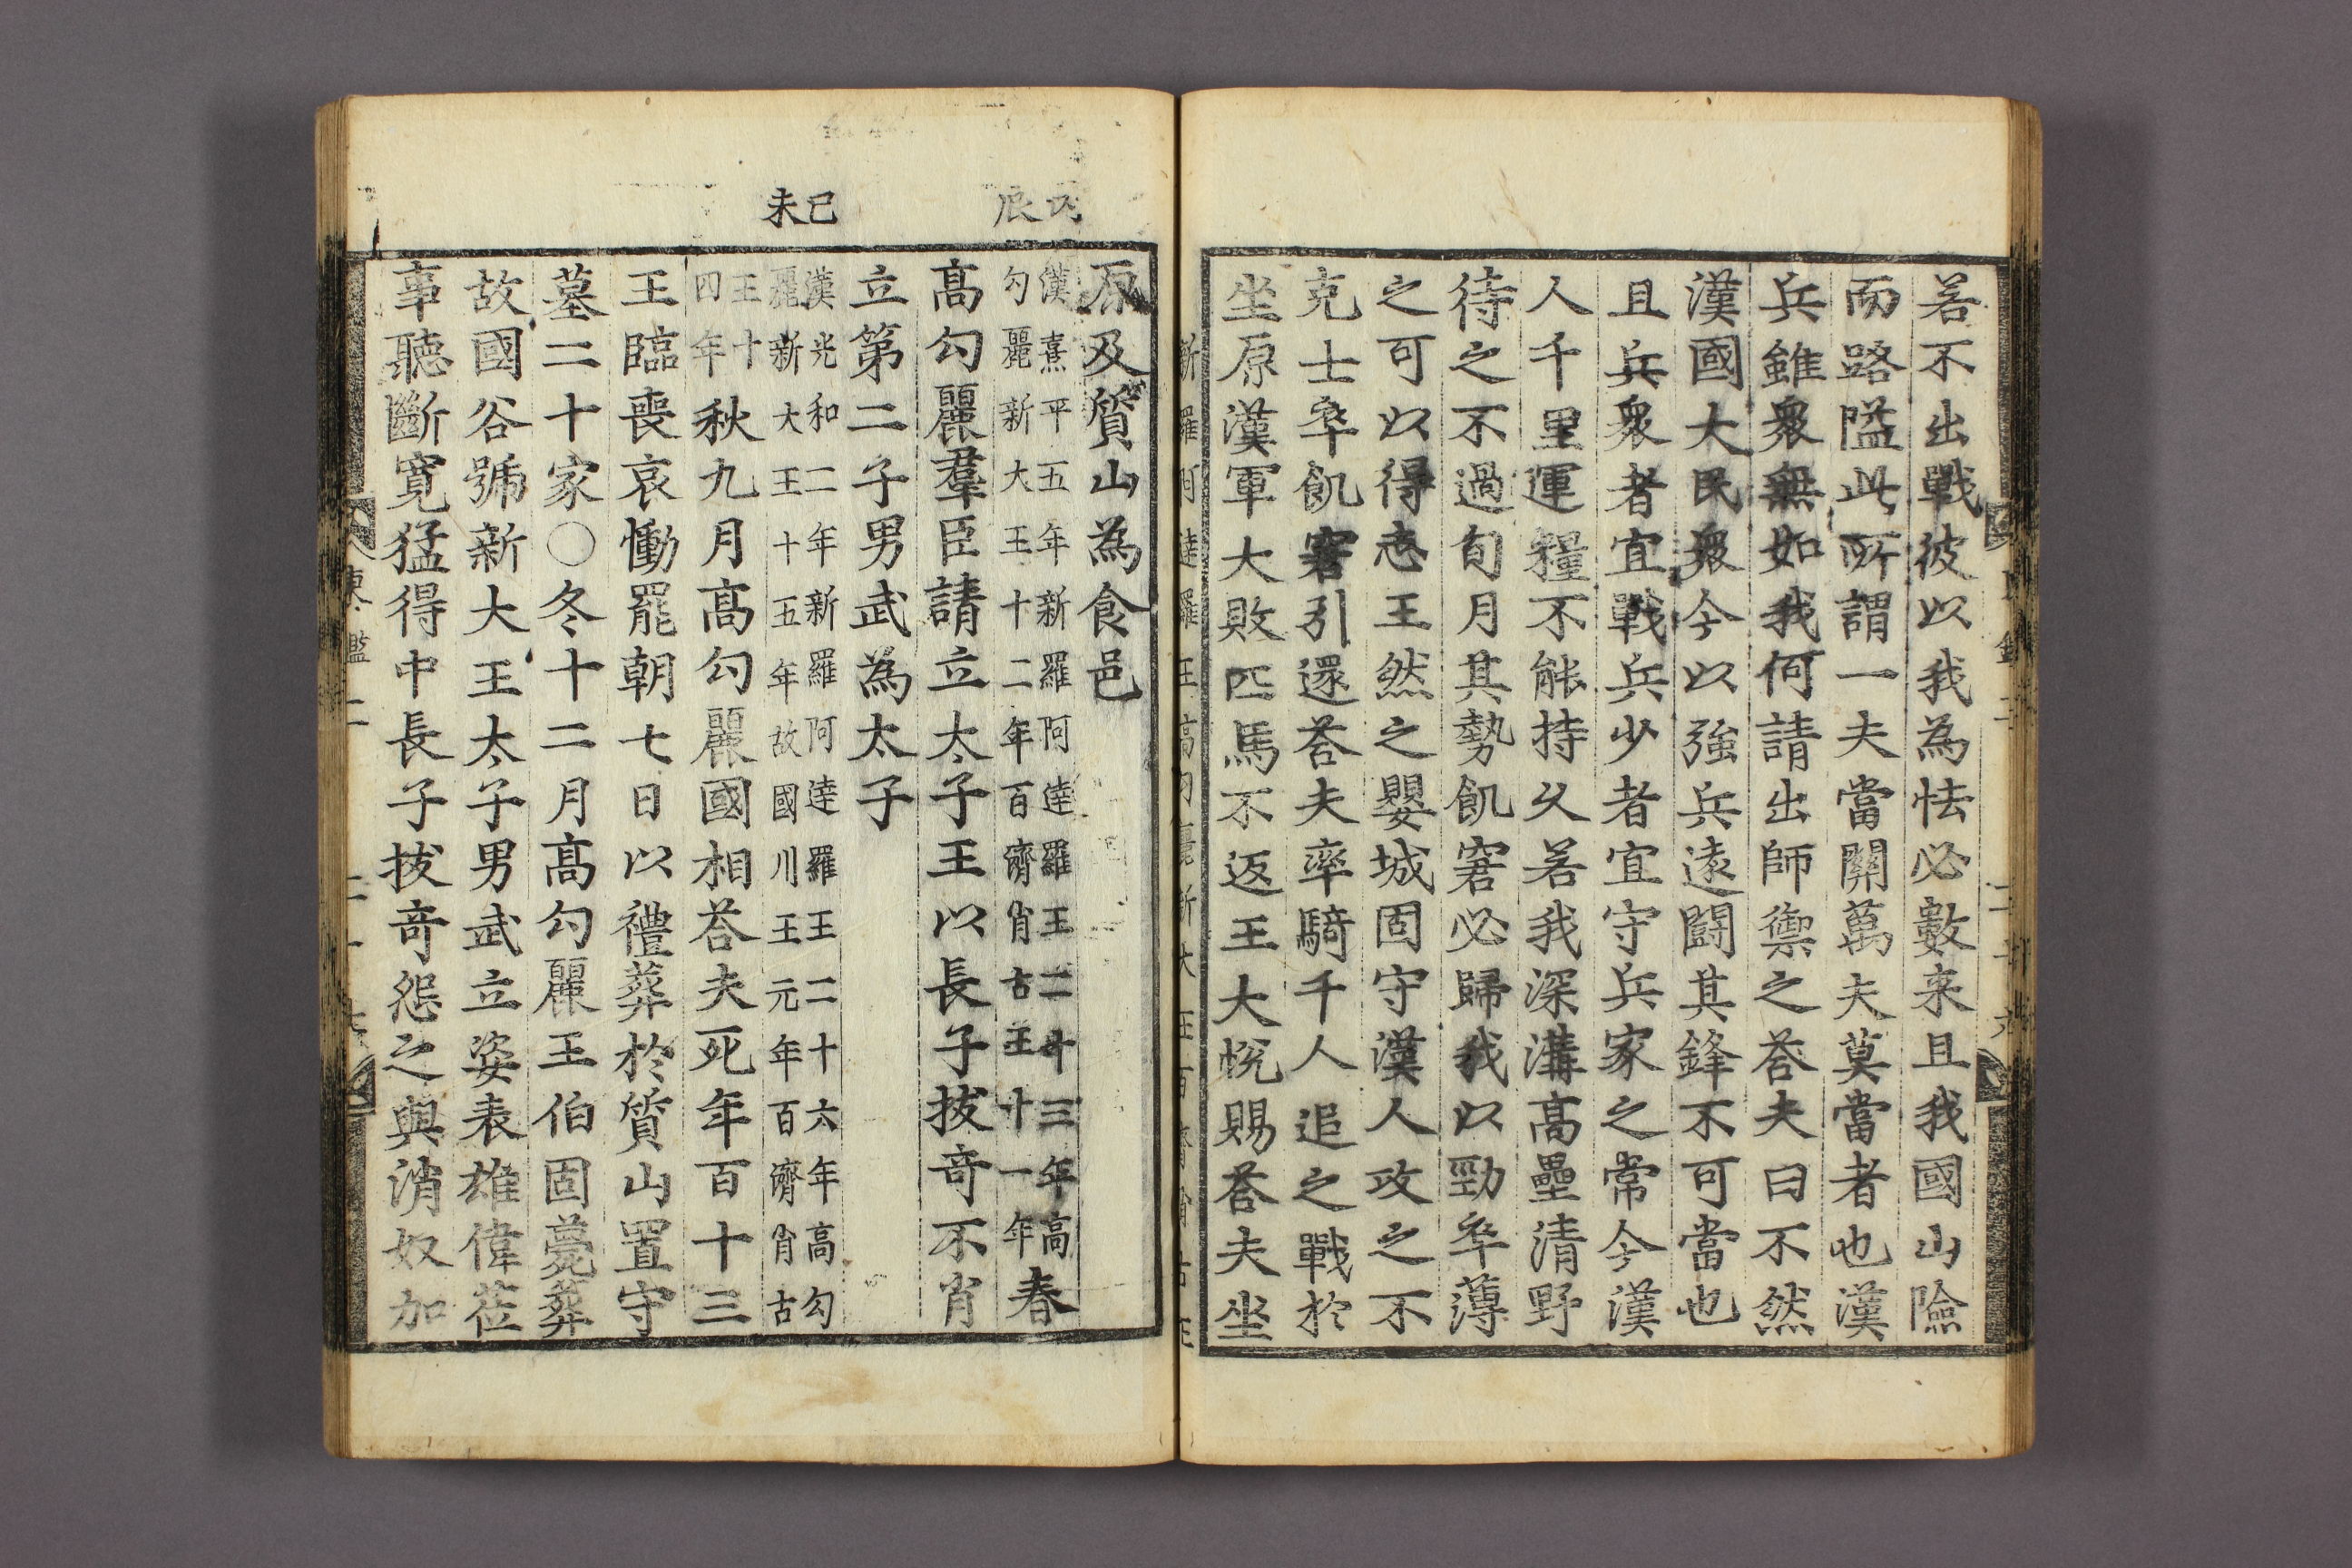 若不出戰彼以我為怯必數来且我國山險
而路隘此所謂一夫當關萬夫莫當者也漢
兵雖衆無如我何請出師禦之荅夫曰不然
漢國大民衆今以強兵逺闘其鋒不可當也
且兵衆者宜戰兵少者宜守兵家之常今漢
人千里運糧不能持久若我深溝高壘清野
待之不過旬月其勢飢窘必歸我以勁卒薄
之可以得志王然之嬰城固守漢人攻之不
克士卒飢窘引還荅夫率騎千人追之戰於
坐原漢軍大敗匹馬不返王大悅賜荅夫坐
原及質山為食邑
丙辰
漢熹平五年新羅阿達羅王二十三年高
勾麗新大王十二年百濟肖古王十一年春
高勾麗羣臣請立太子王以長子拔奇不肖
立第二子男武為太子
己未
漢光和二年新羅阿達羅王二十六年高勾
麗新大王十五年故國川王元年百濟肖古
王十四年秋九月高勾麗國相荅夫死年百十三
王臨喪哀慟罷朝七日以禮葬於質山置守
墓二十家○冬十二月高勾麗王伯固薨葬
故國谷號新大王太子男武立姿表雄偉莅
事聽斷寬猛得中長子拔奇怨之與消奴加
東鑑二